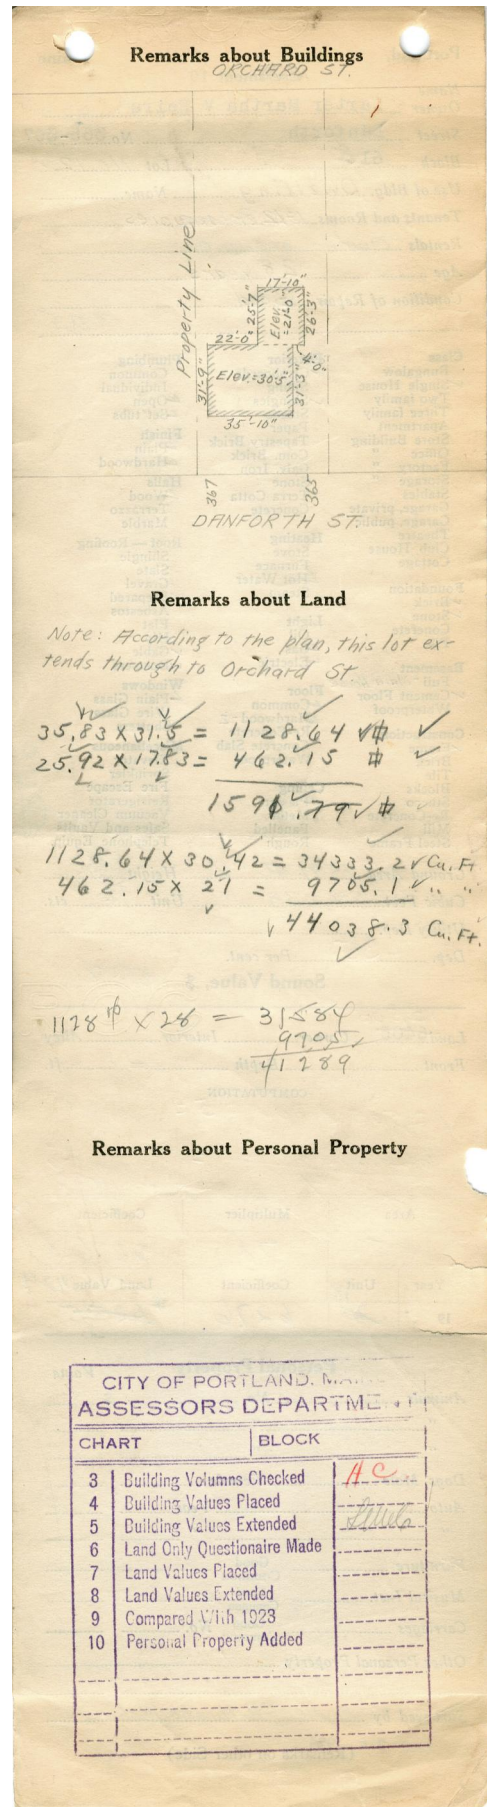 Remarks about Buildings
ORCHARD ST.
1
Property Line
17'-10"
25'-7"
Elev. = 21'-0"
26'-3"
22'-0"
4'-0"
31'-9"
Elev. = 30'-5"
31'-3"
35'-10"
367
365
DANFORTH ST.
Remarks about Land
Note: According to the plan, this lot ex-
tends through to Orchard St
35.83 X 31.5 = 1128.64
25.92 X 17.83 = 462.15
1590.79
1128.64 X 30.42 = 34333.2 Cu. Ft
462.15 X 21 = 9705.1 " "
44038.3 Cu. Ft.
1128 X 28 = 31584
9705
41289
Remarks about Personal Property
CITY OF PORTLAND,
ASSESSORS DEPARTMENT
CHART BLOCK
3 Building Volumns Checked H C
4 Building Values Placed
5 Building Values Extended
6 Land Only Questionaire Made
7 Land Values Placed
8 Land Values Extended
9 Compared With 1923
10 Personal Property Added